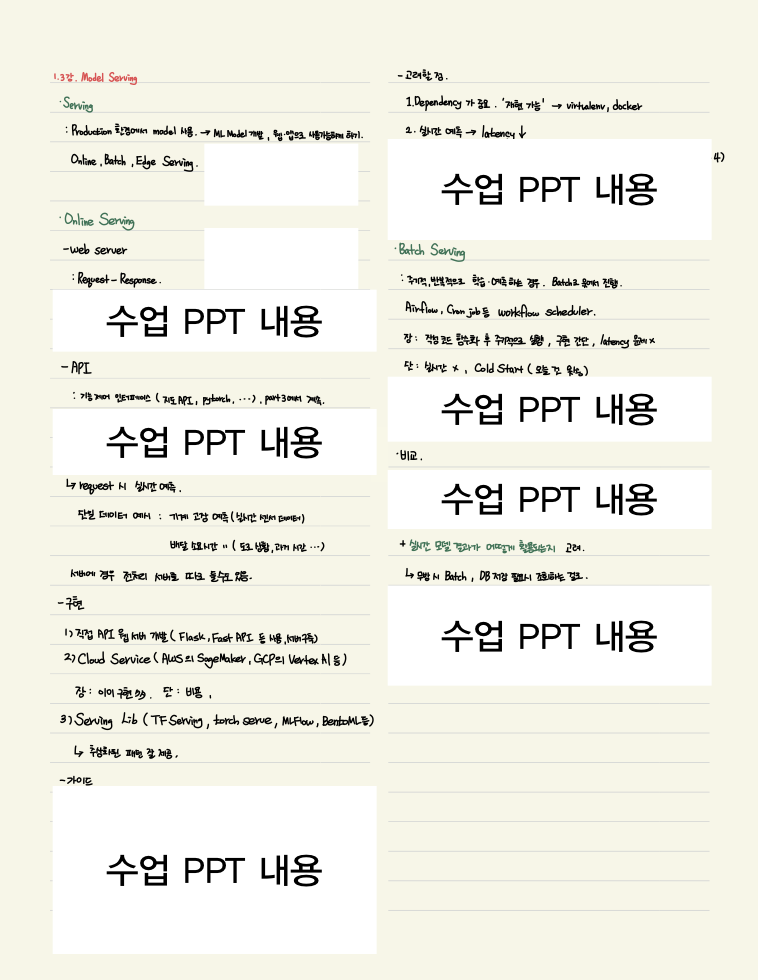 1.3강. Model Serving
·Serving
: Production 환경에서 model 사용. → ML Model 개발, 웹·앱으로 사용가능하게 하기.
Online, Batch, Edge Serving.
·Online Serving
-web server
: Request - Response.
수업 PPT 내용
- API
: 기능제어 인터페이스 ( 지도API, pytorch, ···), part3에서 계속.
수업 PPT 내용
↳ request 시 실시간 예측.
단일 데이터 예시 : 기계 고장 예측 (실시간 센서 데이터)
배달 소요시간 " ( 도로 상황, 과거 시간 ···)
서버에 경우 전처리 서버로 따로 둘수도 있음.
-구현
1) 직접 API 웹 서버 개발 ( Flask, Fast API 등 사용, 서버구축)
2) Cloud Service ( AWS의 SageMaker, GCP의 Vertex AI 등)
장 : 이미 구현 . 단 : 비용,
3) Serving Lib (TF Serving, torch serve, MLFlow, BentoML등)
↳ 추상화된 패턴 잘 제공.
-가이드
수업 PPT 내용
-고려할 점.
1. Dependency 가 중요. '재현 가능' → virtualenv, docker
2. 실시간 예측 → latency ↓
4)
수업 PPT 내용
·Batch Serving
: 주기적, 반복적으로 학습·예측하는 경우. Batch로 묶어서 진행.
Airflow, Cron job등 workflow scheduler.
장 : 작성 코드 함수화 후 주기적으로 실행, 구현 간단, latency 문제 x
단 : 실시간 x, Cold Start ( 오늘 것 못씀)
수업 PPT 내용
·비교.
수업 PPT 내용
+ 실시간 모델 결과가 어떻게 활용되는지 고려.
↳ 무방 시 Batch, DB 저장 필요시 조회하는 걸로.
수업 PPT 내용